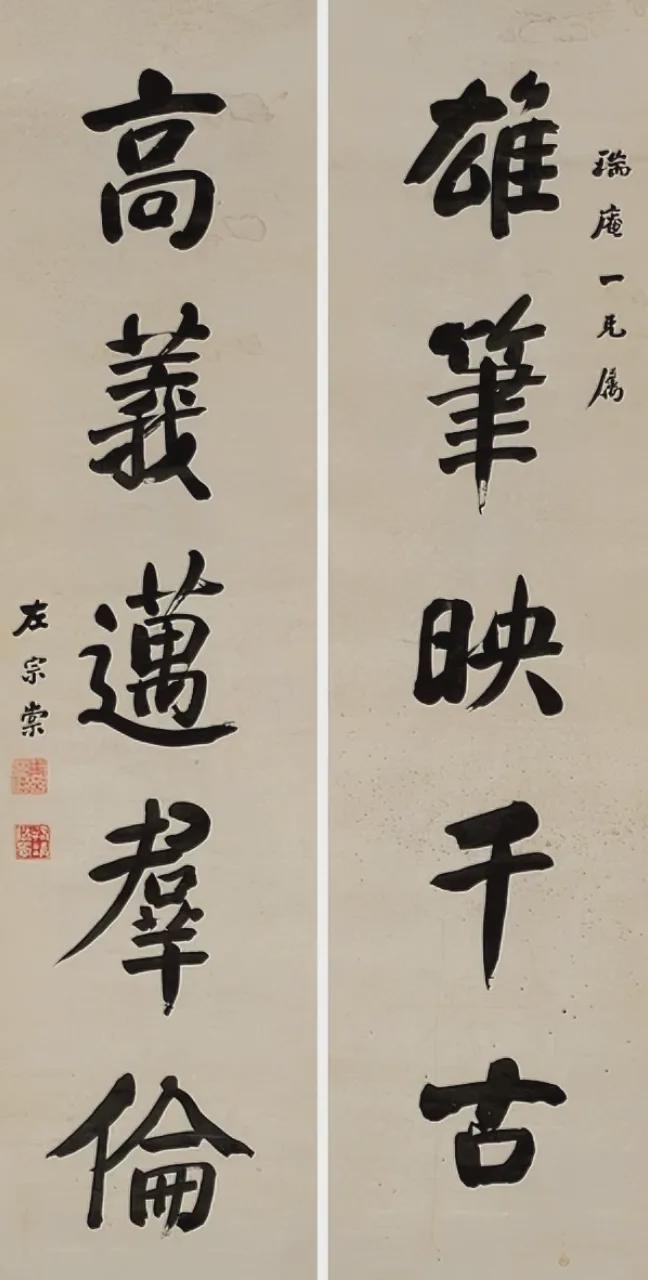 瑞庵一兄屬
雄筆映千古
高義邁羣倫
左宗棠